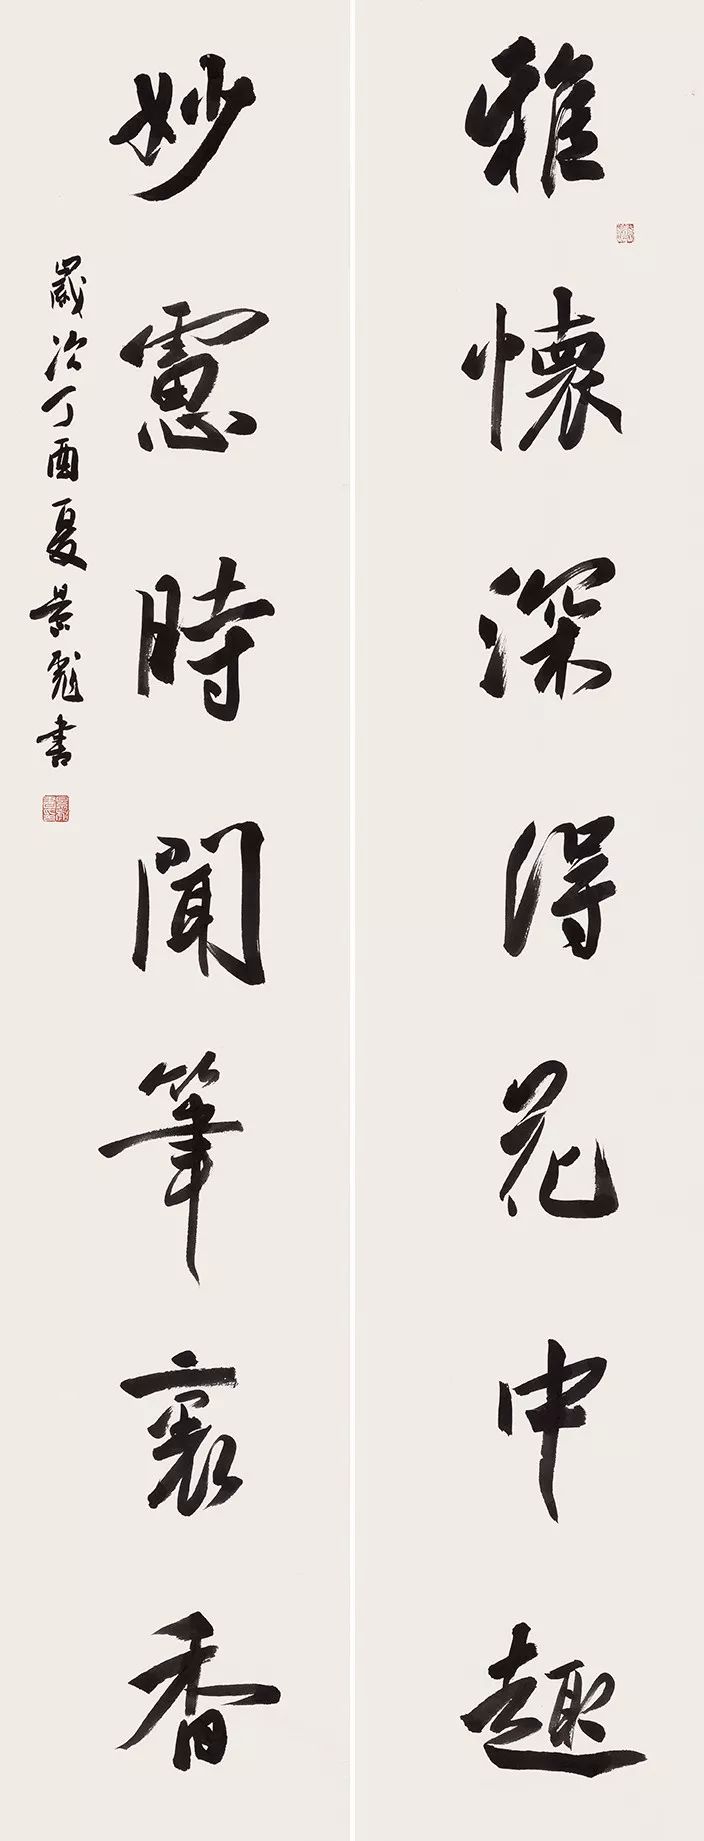 雅懷深得花中趣
妙慮時聞筆裏香
歲次丁酉夏景彪書